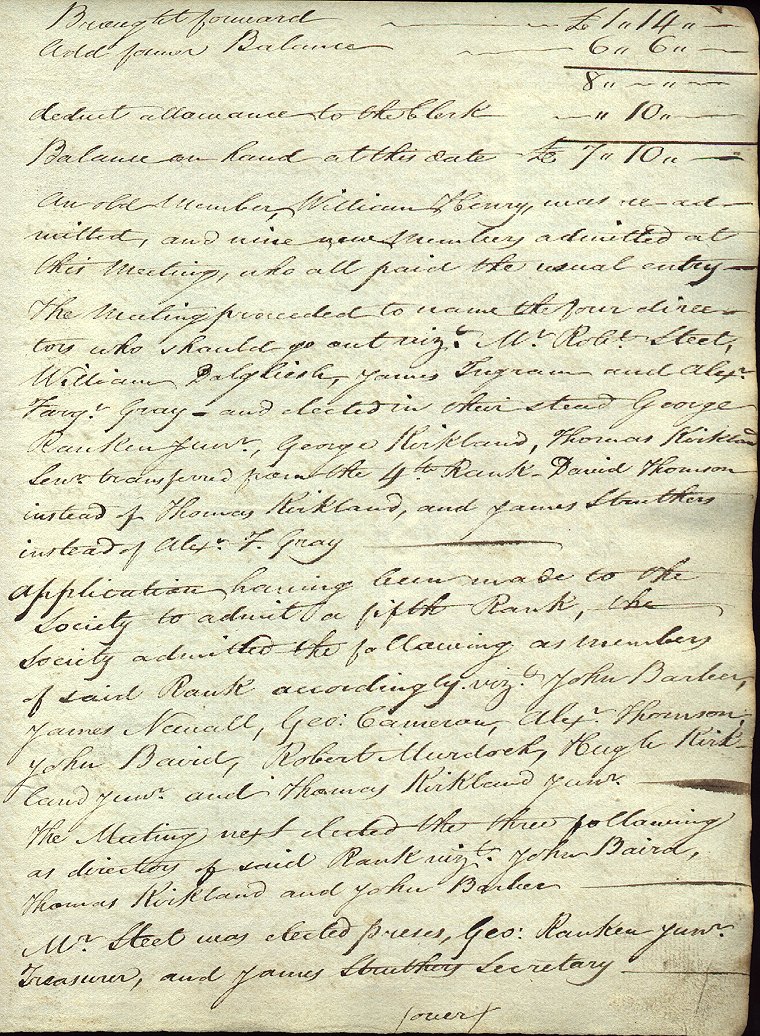 Brought forward £ 1 " 14 " —
Add former Balance 6 " 6 " —
8 " — " —
deduct allowance to the Clerk — " 10 " —
Balance on hand at this date £ 7 " 10 " —
An old Member, William Henry, was re-ad-
mitted, and nine new Members admitted at
this Meeting, who all paid the usual entry —
The Meeting proceeded to name the four direc-
tors who should go out vizt. Mr. Robt. Steel,
William Dalgliesh, James Ingram and Alexr.
Farqr. Gray — and elected in their stead George
Ranken Junr., George Kirkland, Thomas Kirkland
Senr. transferred from the 4th Rank - David Thomson
instead of Thomas Kirkland, and James Struthers
instead of Alexr. F. Gray
Application having been made to the
Society to admit a fifth Rank, the
Society admitted the following as members
of said Rank accordingly vizt. John Barber,
James Newall, Geo: Cameron, Alexr. Thomson,
John Baird, Robert Murdoch, Hugh Kirk-
land Junr. and Thomas Kirkland Junr.
The Meeting next elected the three following
as directors of said Rank vizt. John Baird,
Thomas Kirkland and John Barber
Mr. Steel was elected preses, Geo: Ranken Junr.
Treasurer, and James Struthers Secretary
(over)